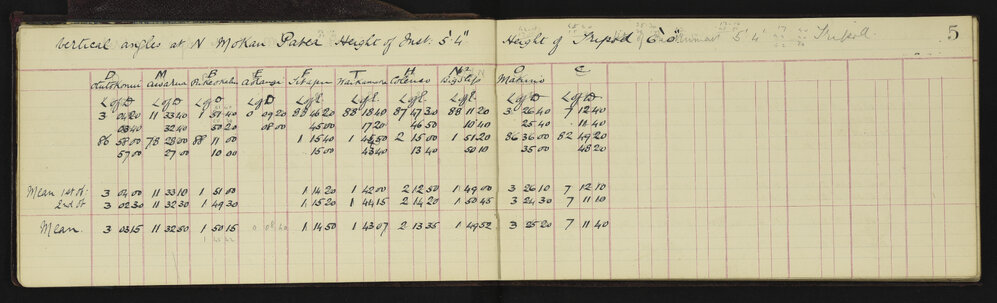 Vertical angles at N Mokau Pater Height of Inst. 5' 4" Height of Tripod 6' 6" 5' 4" Tripod 5
D M B E F T H N2 O C
Awarua Waikamoro Colenso Makino
L of D L of D L of D L of D L of L. L of L. L of L. L of L. L of D L of D
3 04 20 11 33 40 1 51 40 0 09 20 88 46 20 88 18 40 87 47 30 88 11 20 3 26 40 7 12 40
03 40 32 40 50 20 08 00 45 00 17 20 46 50 10 40 25 40 11 40
86 58 00 78 28 00 88 11 00 1 15 40 1 45 50 2 15 00 1 51 20 86 36 00 82 49 20
57 00 27 00 10 00 15 00 43 40 13 40 50 10 35 00 48 20
Mean 1st of: 3 04 00 11 33 10 1 51 00 1 14 20 1 42 00 2 12 50 1 49 00 3 26 10 7 12 10
2nd of 3 02 30 11 32 30 1 49 30 1 15 20 1 44 15 2 14 20 1 50 45 3 24 30 7 11 10
Mean. 3 03 15 11 32 50 1 50 15 0 08 40 1 14 50 1 43 07 2 13 35 1 49 52 3 25 20 7 11 40